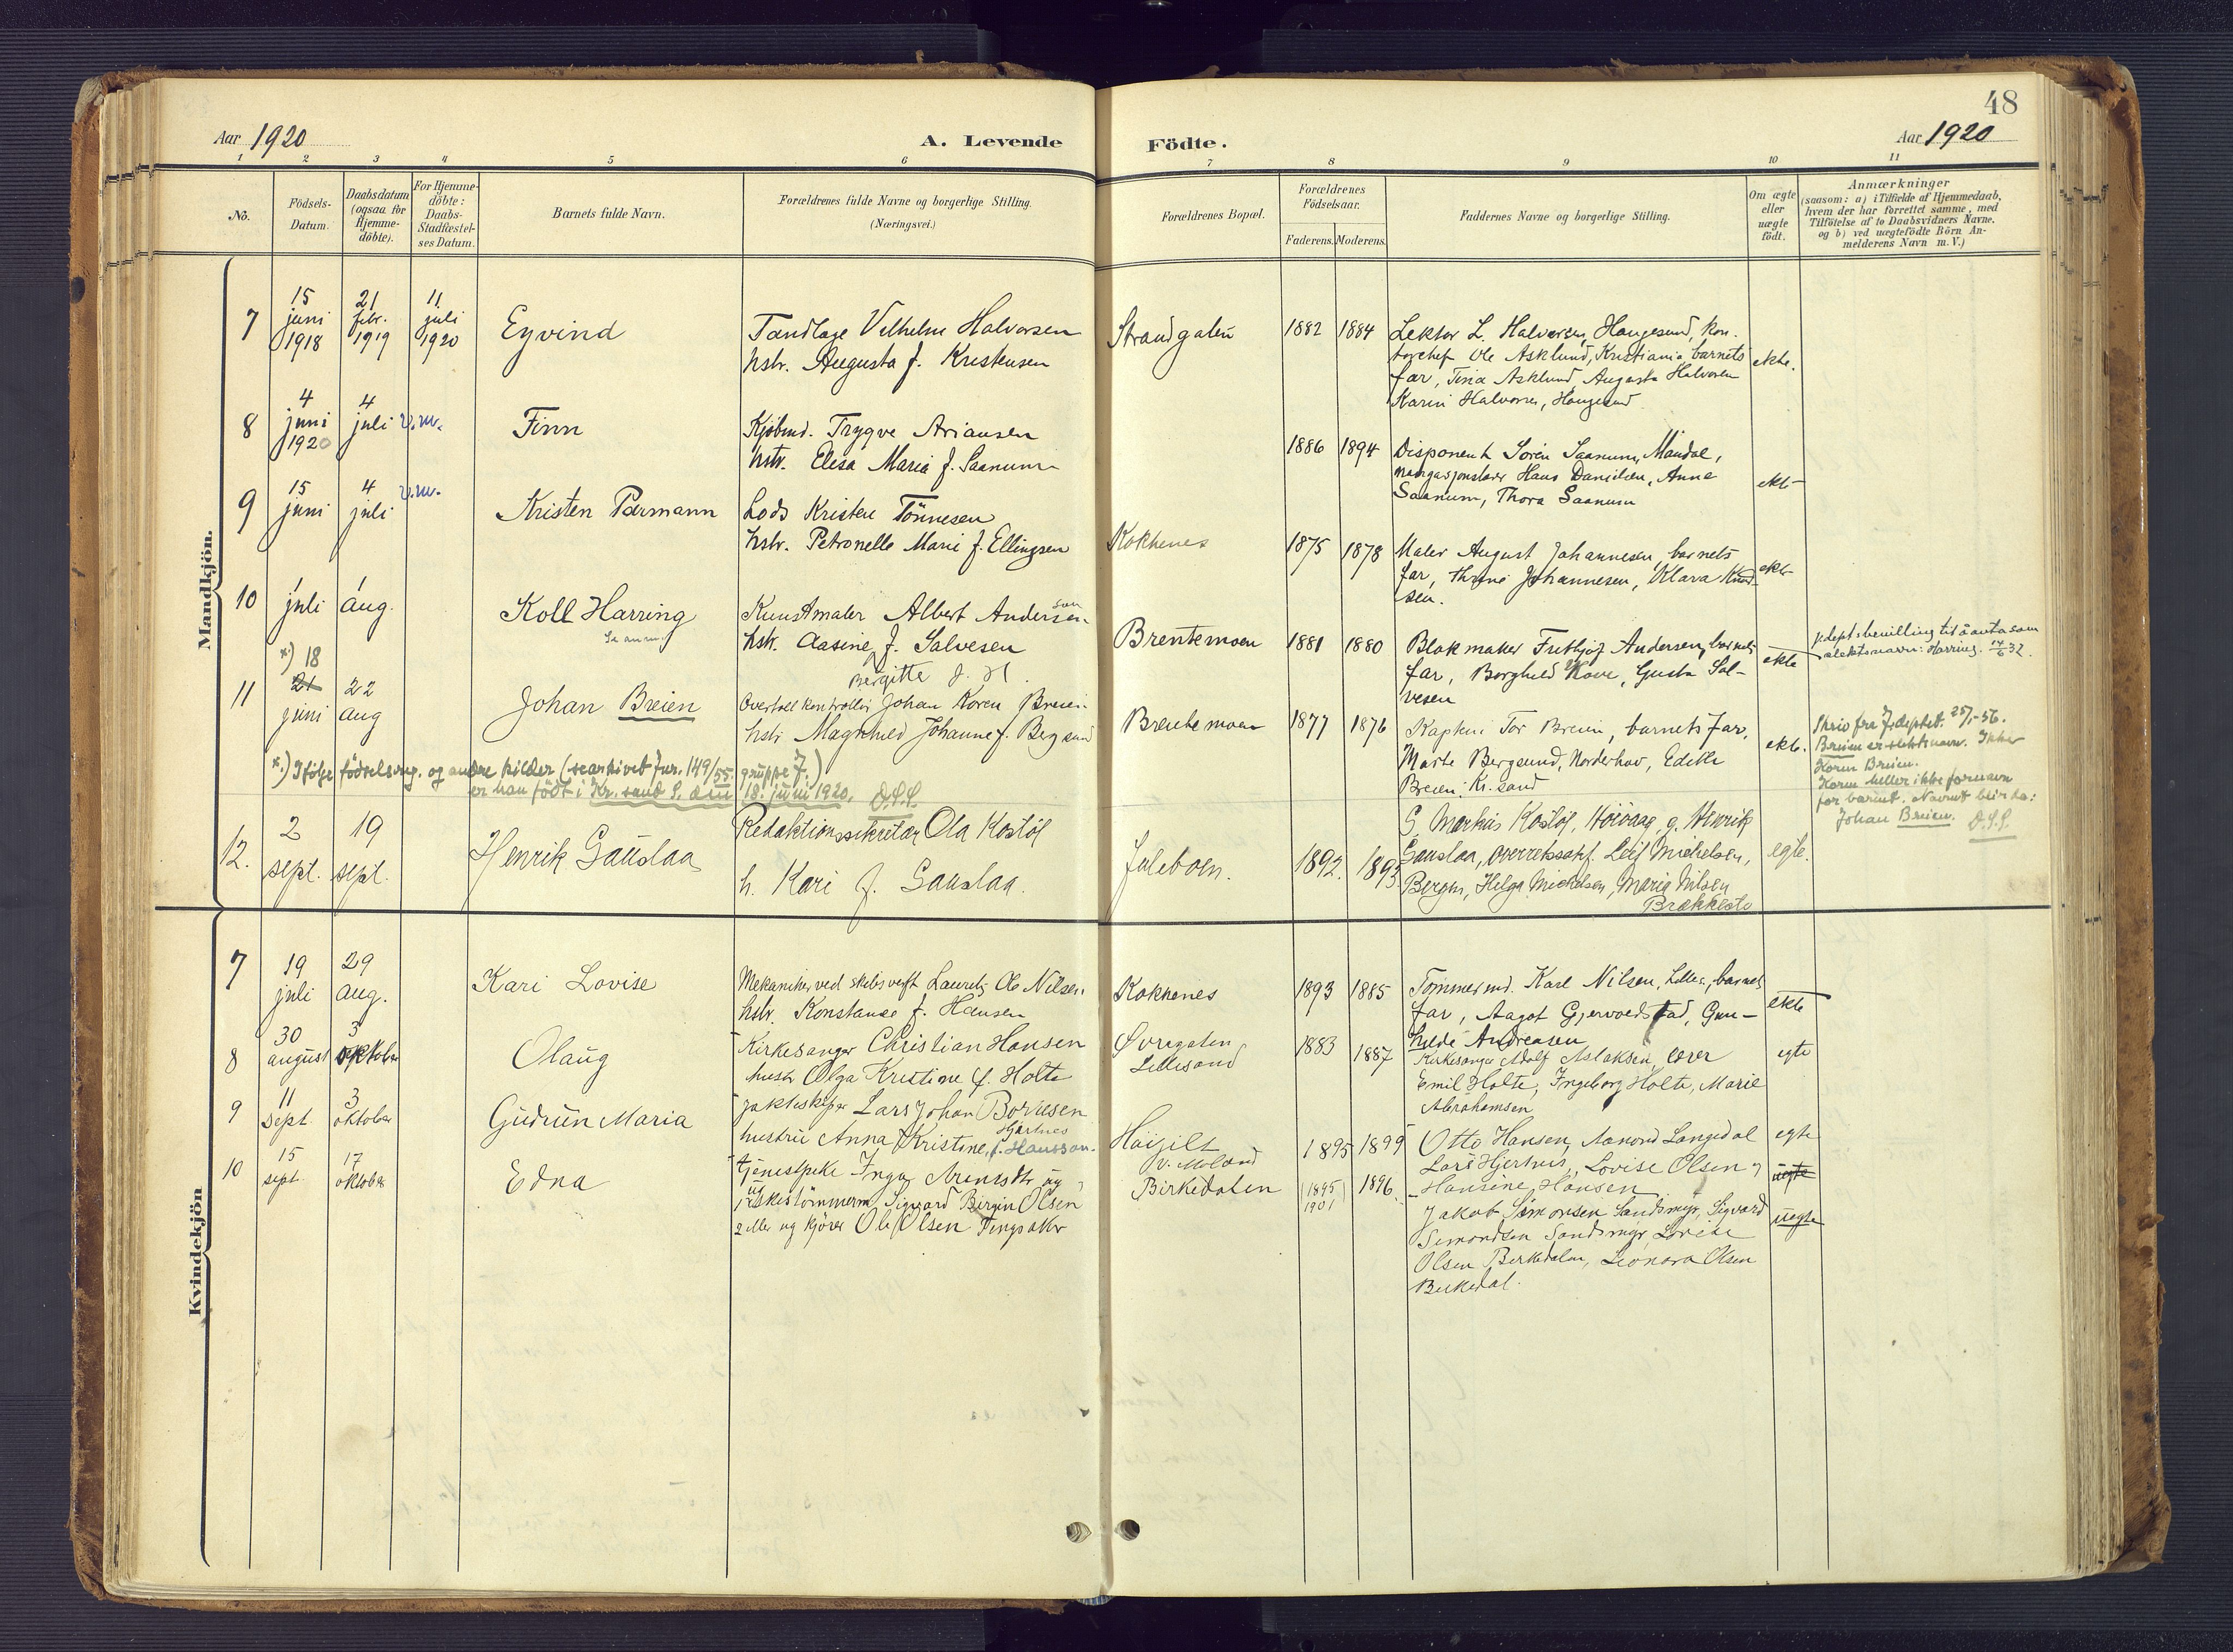 48
Aar 1920
A. Levende
Födte.
Aar 1920
1 2 3 4 5 6 7 8 9 10 11
No.
Födsels-
Datum.
Daabsdatum
(ogsaa for
Hjemme-
döbte).
For Hjemme-
döbte:
Daabs-
Stadfæstel-
ses Datum.
Barnets fulde Navn.
Forældrenes fulde Navne og borgerlige Stilling.
(Næringsvei.)
Forældrenes Bopæl.
Forældrenes
Födselsaar.
Faderens. Moderens.
Faddernes Navne og borgerlige Stilling.
Om ægte
eller
uægte
födt.
Anmærkninger
(saasom: a) i Tilfælde af Hjemmedaab,
hvem der har forrettet samme, med
Tilföielse af to Daabsvidners Navne.
og b) ved uægtefödte Börn An-
melderens Navn m. V.)
Mandkjön.
7
15
juni
1918
21
febr.
1919
11
juli
1920
Eyvind
Tandlæge Vilhelm Halvorsen
hstr. Augusta f. Kristensen
Strandgaten
1882 1884
Lektor L. Halvorsen, Haugesund, kon-
torchef Ole Asklund, Kristiania, barnets
far, Tina Asklund, Augusta Halvorsen
Karin Halvorsen, Haugesund
ekte.
8
4
juni
1920
4
juli
v.m.
Finn
Kjöbmd. Trygve Ariansen
hstr. Elisa Maria f. Saanum
1886 1894
Disponent Sören Saanum, Mandal,
Hans Danielsen, Anna
Saanum, Thora Saanum
ekte
9
15
juni
4
juli
v.m.
Kristen Parmann
Lods Kristen Tönnesen
hstr. Petronelle Marie f. Ellingsen
Kokkenes
1875 1878
Maler August Johannesen, barnets
far, Johannesen, Klara Knud-
sen.
ekte
10
1
juli
1
aug.
Koll Harring
Kunstmaler Albert Andersen
hstr. Aasine f. Salvesen
Brentemoen
1881 1880
Blokmaker Frithjof Andersen, barnets
far, Borghild Hove, Gusta Sal-
vesen
ekte
J.depts bevilling til å anta som
slektsnavn: Harring. 14/6 32.
11
x) 18
21
juni
22
aug
Johan Breien
Bergitte f. H.
Overtollkontrollør Johan Koren Breien
hstr Maghild Johanne f. Bergsund
Brentemoen
1877 1876
Kaptein Tor Breien, barnets far,
Marte Bergsund, Norderhov, Edith
Breien, Kr.sand
ekte.
Skriv fra J.deptet. 25/1-56.
Breien er slektsnavn. Ikke
Koren Breien.
Koren heller ikke fornavn
for barnet. Navnet blir da:
Johan Breien. D.S.S.
x.) Ifølge fødselsreg. og andre kilder (se arkivet Jnr. 149/55. gruppe J.)
er han født i Kr. sand S. den 18. juni 1920. D.S.S.
12.
2
sept.
19
sept.
Henrik Gauslaa
Redaktionssekretær Ola Kostöl
h. Kari f. Gauslaa.
Juleboen.
1892. 1893.
G. Markus Kostöl, Höivaag, g. Henrik
Gauslaa, overretssakf. Leif Michelsen,
Bergen, Helga Michelsen, Maria Nilsen
Brækkestö
egte.
Kvindekjön
7
19
juli
29
aug.
Kari Lovise
Mekaniker ved skibsverft Laurets Ole Nilsen
hstr. Konstanse f. Hansen
Kokkenes
1893 1885
Tömmermd. Karl Nilsen, Lilles., barnets
far, Aagot Gjervoldstad, Gun-
hilde Andreasen
ekte
8
30
august
3
oktober
Olaug
Kirkesanger Christian Hansen
hustr Olga Kristine f. Holte
Øvregaten
Lillesand
1883 1887
Kirkesanger Adolf Aslaksen, lærer
Emil Holte, Ingeborg Holte, Marie
Abrahamsen
egte
9
11
sept.
3
oktober
Gudrun Maria
Jakteskipper Lars Johan Bornesen
Hjertnes
hustru Anna Kristine, f. Hansson.
Höigilt
v. Moland
1895 1899
Otto Hansen, Aanond Langedal
Lars Hjertnes, Lovise Olsen
Hansine Hansen
egte
10
15
sept
17
oktober
Edna
tjenestpike Inga
Sigvard Birgin Olsen
Ole Olsen Tingsaker
Birkedalen
(1895)
1901
1896
Jakob Simonsen Sandsmyr, Sigvard
Simondsen Sandsmyr, Lovise
Olsen Birkedalen, Leonora Olsen
Birkedal.
uegte
uegte